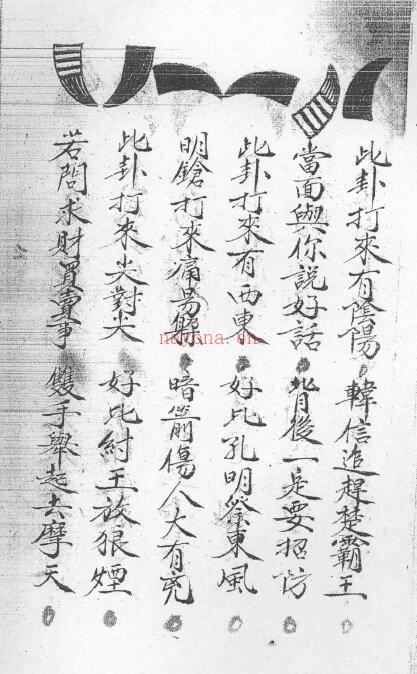 此卦打來有陰陽 韓信追趕楚霸王
當面與你說好話 背後一定要招防
此卦打來有西東 好比孔明祭東風
明鎗打來痛易解 暗箭傷人大有兇
此卦打來尖對尖 好比紂王放狼煙
若問求財買賣事 雙手舉起去摩天
nayona.cn